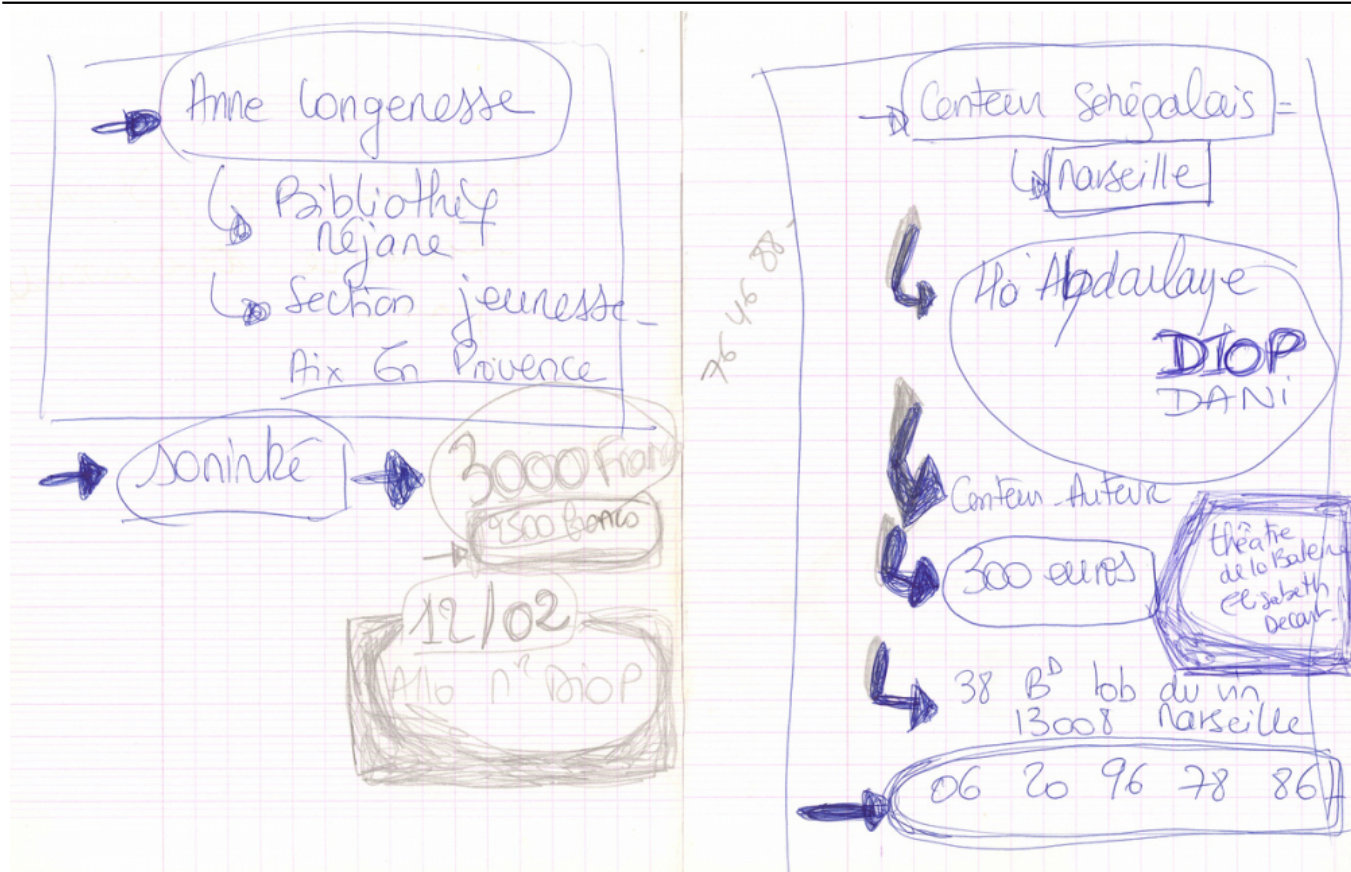 Anne Longenesse
Bibliothèq
Méjane
Section jeunesse
Aix En Provence
soninké
3000 Franc
2500 francs
12/02
Allo Mr DIOP
76 46 88
Conteur Sénégalais =
Marseille
Abdoulaye
DIOP
DANI
Conteur-Auteur
300 euros
théâtre
de la Baleine
Elisabeth
Decant
38 BD du vin
13008 Marseille
06 20 96 78 86